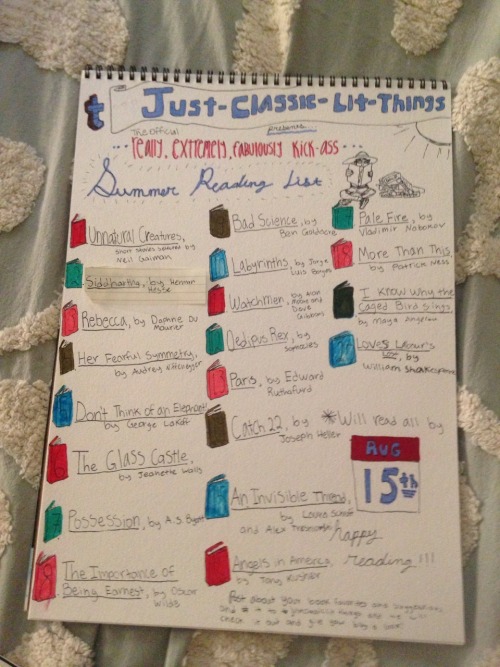 t Just-Classic-Lit-Things
The official
presents
... really, extremely, fabulously kick-ass ...
Summer Reading List
Unnatural Creatures,
short stories selected by
Neil Gaiman
Siddhartha, by Herman
Hesse
Rebecca, by Daphne Du
Maurier
Her Fearful Symmetry,
by Audrey Niffenegger
Don't Think of an Elephant
by George Lakoff
The Glass Castle,
by Jeanette Walls
Possession, by A.S. Byatt
The Importance of
Being Earnest, by Oscar
Wilde
Bad Science, by
Ben Goldacre
Labyrinths, by Jorge
Luis Borges
Watchmen, by Alan
Moore and
Dave
Gibbons
Oedipus Rex, by
Sophocles
Paris, by Edward
Rutherfurd
Catch 22, by
Joseph Heller
An Invisible Thread,
by Laura Schroff
and Alex Tresniowski
Angels in America,
by Tony Kushner
Pale Fire, by
Vladimir Nabokov
More Than This,
by Patrick Ness
I Know Why the
Caged Bird Sings,
by Maya Angelou
Love's Labour's
by
William Shakespeare
*Will read all by
AUG
15th
happy
reading!!!
Post about your book favorites and suggestions
and # it to # and we will
check it out and give your blog a look!